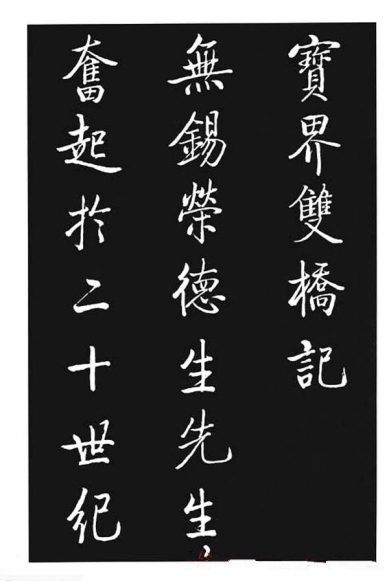 寶界雙橋記
無錫榮德生先生
奮起於二十世紀